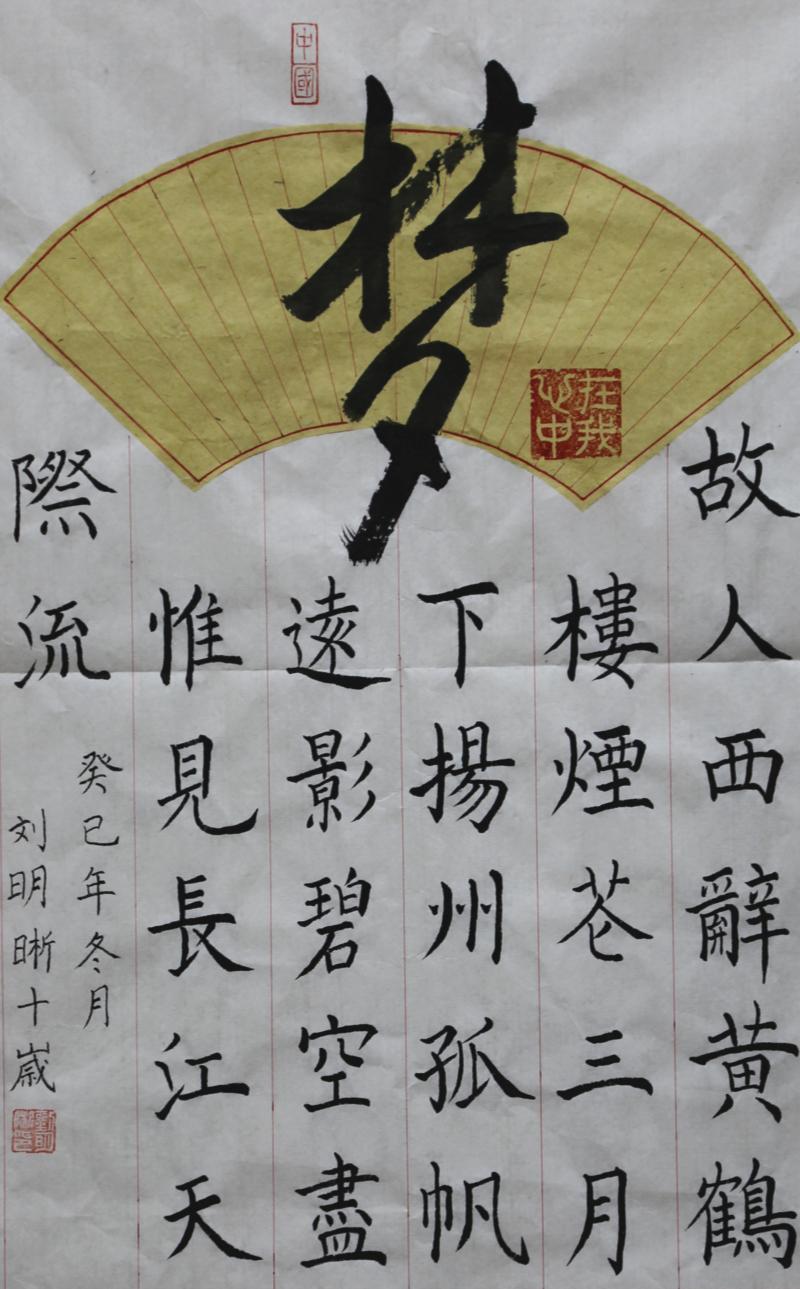 中國
梦
在我
心中
故人西辭黄鶴
樓煙花三月
下揚州孤帆
遠影碧空盡
惟見長江天
際流
癸巳年冬月
刘明晰十嵗